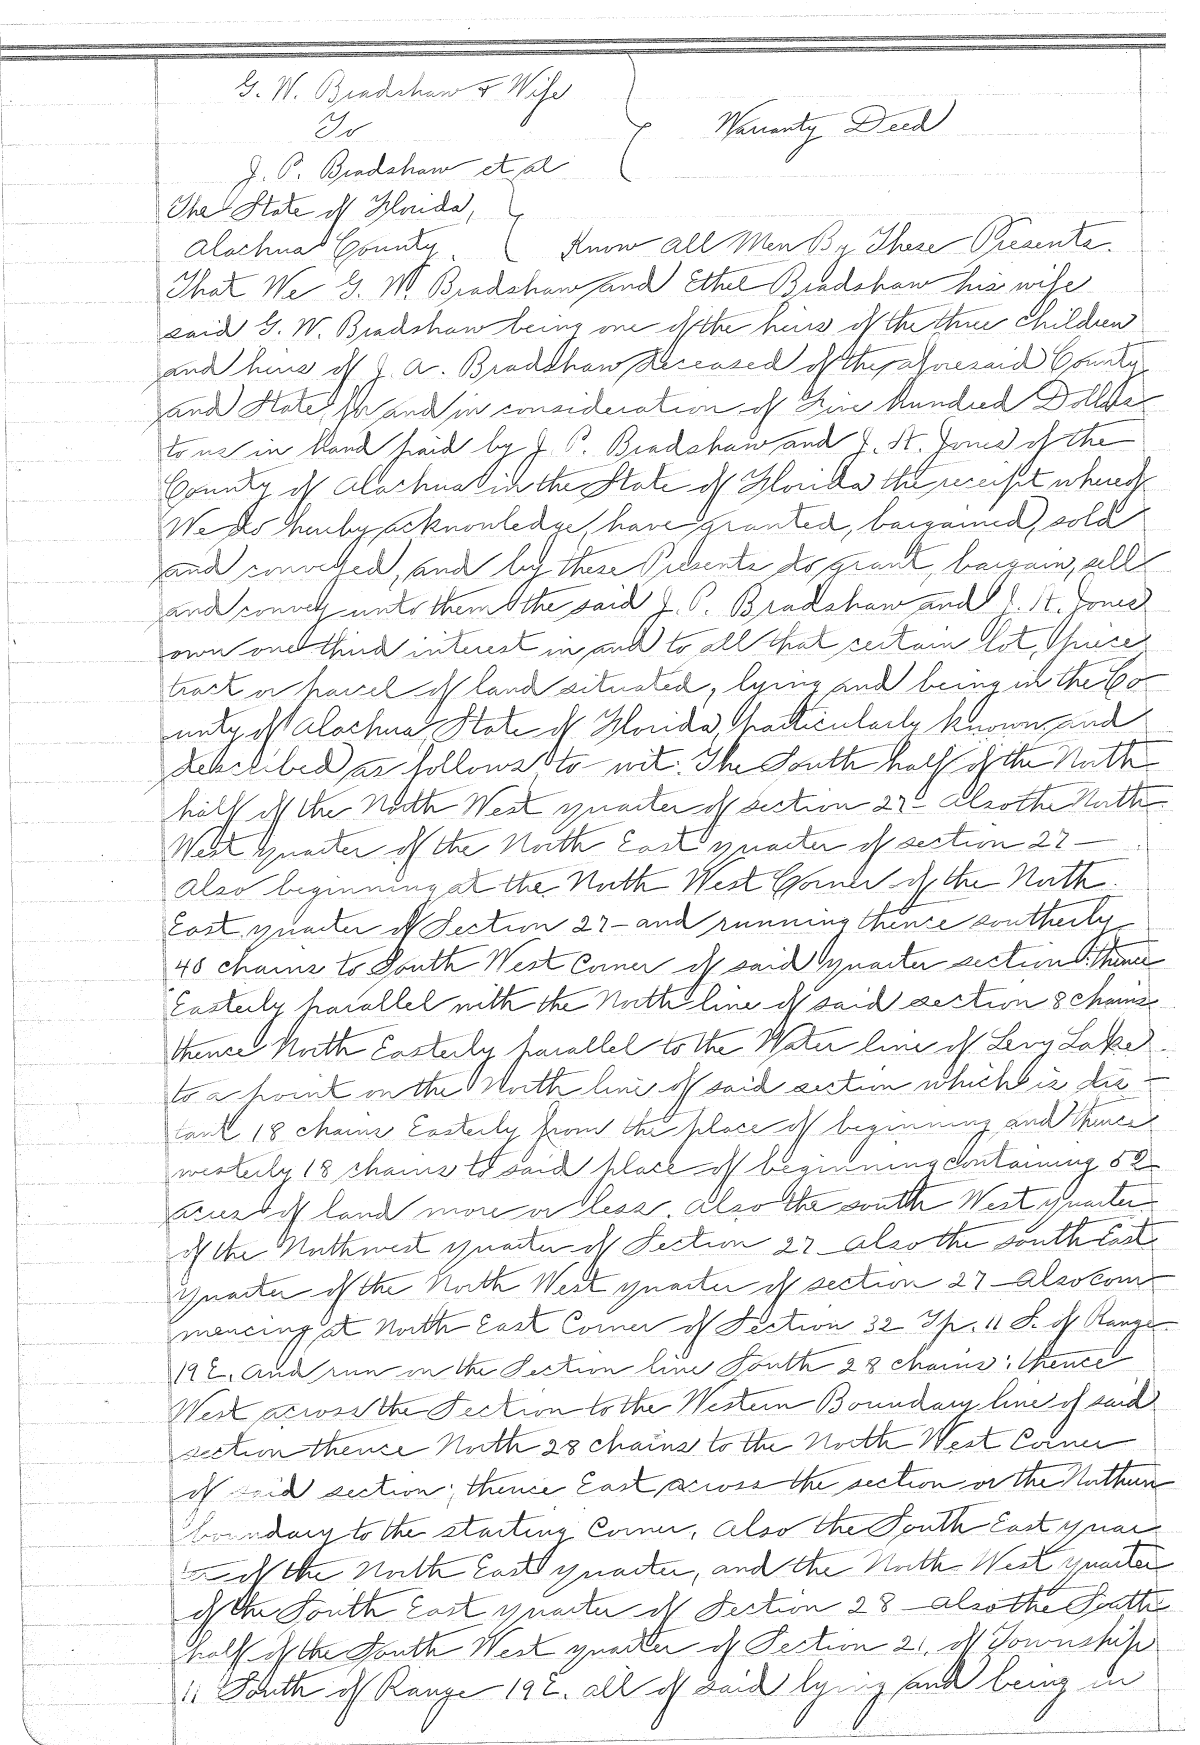 G. W. Bradshaw & Wife
To
Warranty Deed
J. P. Bradshaw et al
The State of Florida,
Alachua County. Know All Men By These Presents.
That We G. W. Bradshaw and Ethel Bradshaw his wife
said G. W. Bradshaw being one of the heirs of the three children
and heirs of J. A. Bradshaw deceased of the aforesaid County
and State, for and in consideration of Five Hundred Dollars
to us in hand paid by J. P. Bradshaw and J. H. Jones of the
County of Alachua in the State of Florida the receipt whereof
We do hereby acknowledge, have granted, bargained, sold
and conveyed, and by these Presents do grant, bargain, sell
and convey unto them the said J. P. Bradshaw and J. H. Jones
own one third interest in and to all that certain lot, piece
tract or parcel of land situated, lying and being in the Co
unty of Alachua, State of Florida, particularly known and
described as follows to-wit: The South half of the North
half of the North West quarter of section 27- Also the North
West quarter of the North East quarter of section 27-
Also beginning at the North West Corner of the North
East quarter of Section 27- and running thence southerly
40 chains to South West Corner of said quarter section: thence
Easterly parallel with the North line of said section 8 chains
thence North Easterly parallel to the Water line of Levy Lake
to a point on the North line of said section which is dis-
tant 18 chains Easterly from the place of beginning and thence
westerly 18 chains to said place of beginning containing 52
acres of land more or less. Also the south West quarter
of the Northwest quarter of Section 27 Also the south East
quarter of the North West quarter of section 27 Also com
mencing at North East Corner of Section 32 Tp. 11 S. of Range
19 E. and run on the Section line South 28 chains; thence
West across the Section to the Western Boundary line of said
section thence North 28 chains to the North West Corner
of said section; thence East across the section on the Northern
boundary to the starting Corner. Also the South East quar
of the North East quarter, and the North West quarter
of the South East quarter of Section 28 Also the South
half of the South West quarter of Section 21, of Township
11 South of Range 19 E. all of said lying and being in